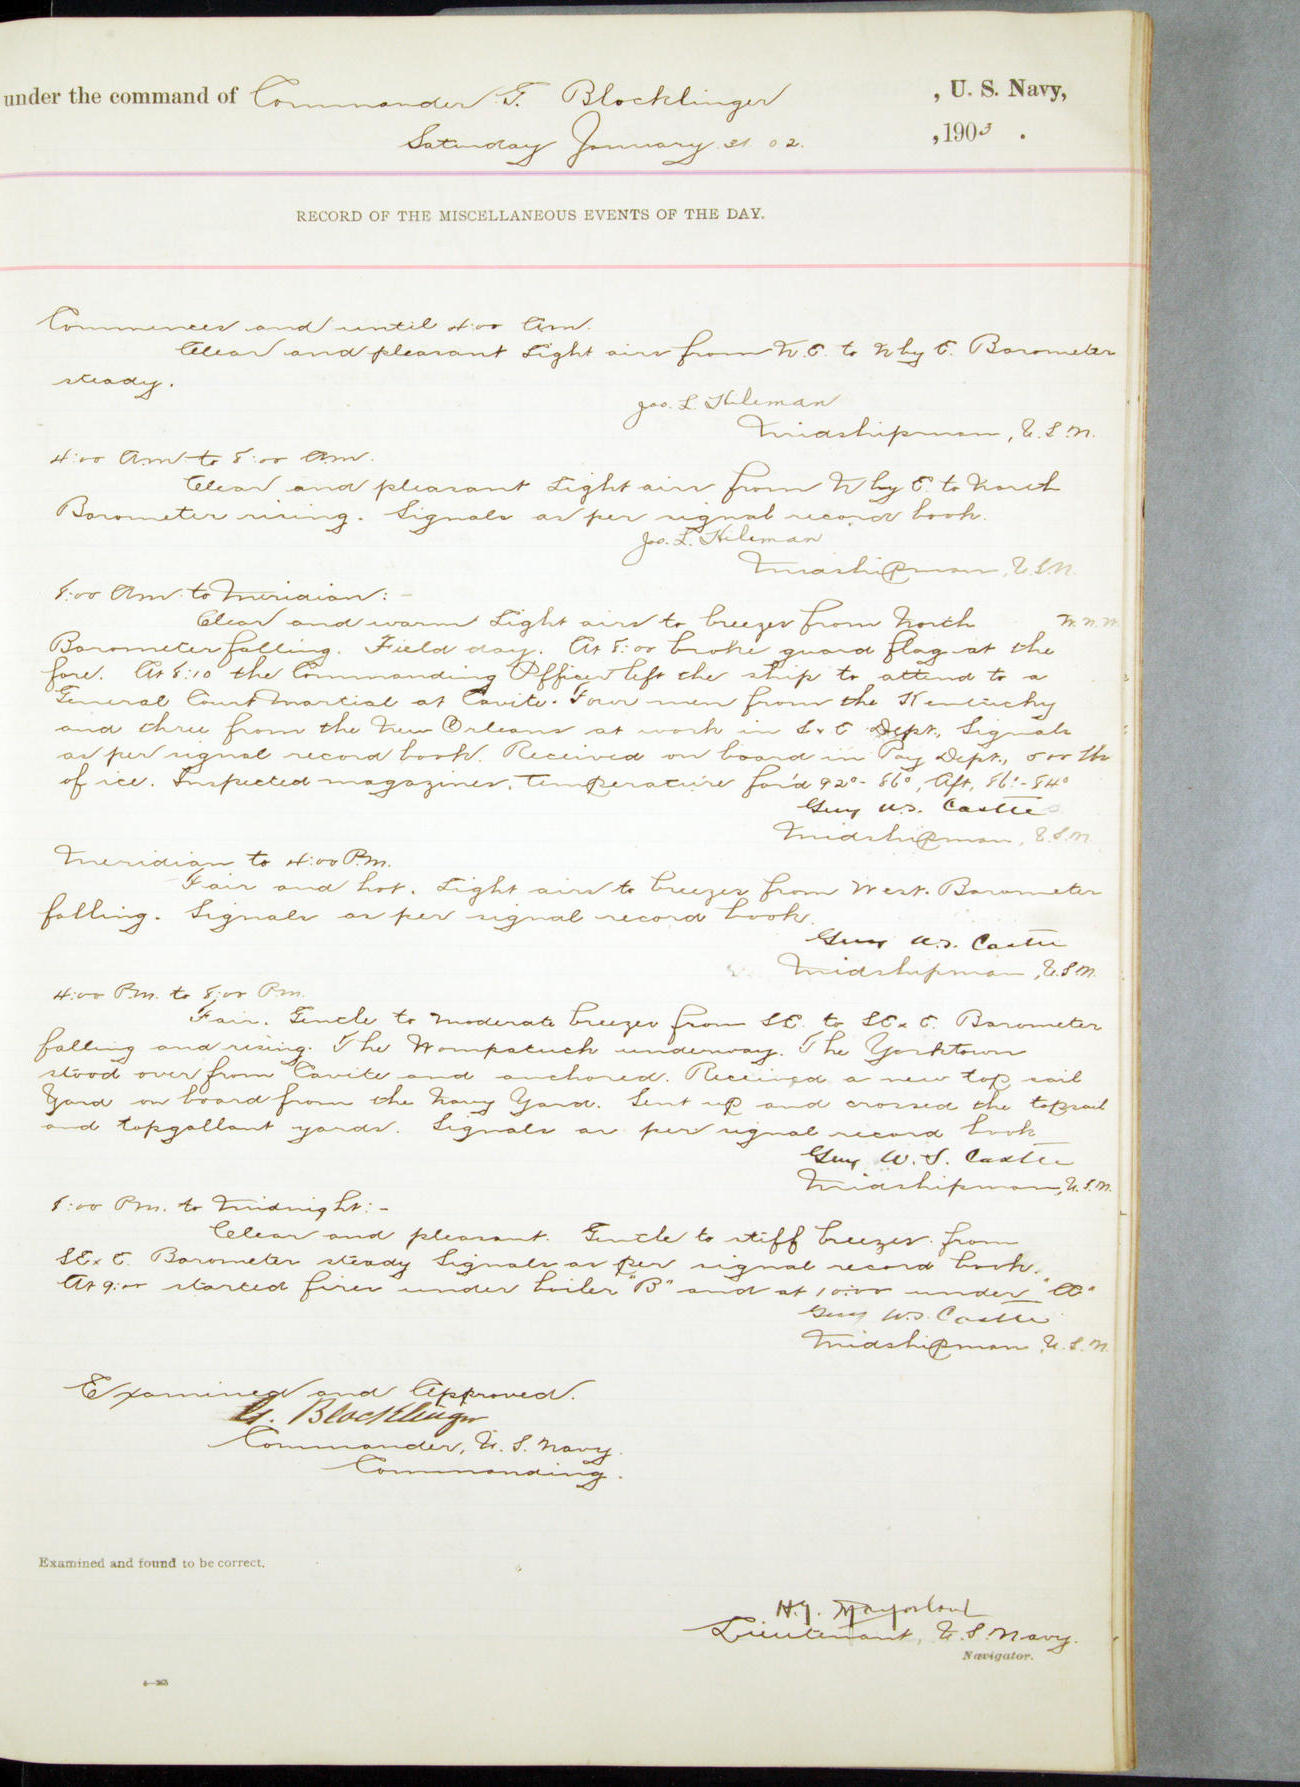 under the command of Commander G. Blocklinger , U. S. Navy,
Saturday January 31 02. , 1903 .
RECORD OF THE MISCELLANEOUS EVENTS OF THE DAY.
Commences and until 4:00 Am.
Clear and pleasant Light airs from N.E. to N by E. Barometer
steady.
Jos. L. Hileman
Midshipman, U.S.N.
4:00 Am to 8:00 Am.
Clear and pleasant Light airs from N by E. to North
Barometer rising. Signals as per signal record book.
Jos. L. Hileman
Midshipman, U.S.N.
8:00 Am to Meridian: -
Clear and warm Light airs to breezes from North N.N.W.
Barometer falling. Field day. At 8:00 broke guard flag at the
fore. At 8:10 the Commanding Officer left the ship to attend to a
General Court Martial at Cavite. Four men from the Kentucky
and three from the New Orleans at work in S.&E Dept., Signals
as per signal record book. Received on board in Pay Dept., 500 lbs
of ice. Inspected magazines, temperature for'd 92°- 86°, Aft, 86°- 84°
Guy W.S. Castle
Midshipman, U.S.N.
Meridian to 4:00 P.m.
Fair and hot. Light airs to breezes from West. Barometer
falling. Signals as per signal record book.
Guy W.S. Castle
Midshipman, U.S.N.
4:00 P.m. to 8:00 P.m.
Fair. Gentle to moderate breezes from SE. to SE x E. Barometer
falling and rising. The Wompatuck underway. The Yorktown
stood over from Cavite and anchored. Received a new top sail
Yard on board from the Navy Yard. Sent up and crossed the topsail
and topgallant yards. Signals as per signal record book
Guy W. S. Castle
Midshipman, U.S.N.
8:00 P.m. to Midnight: -
Clear and pleasant. Gentle to stiff breezes from
SE x E. Barometer steady Signals as per signal record book.
At 9:00 started fires under boiler "B" and at 10:00 under "A"
Guy W.S. Castle
Midshipman, U.S.N.
Examined and Approved.
G. Blocklinger
Commander, U. S. Navy.
Commanding.
Examined and found to be correct.
H.G.
Lieutenant, U.S. Navy.
Navigator.